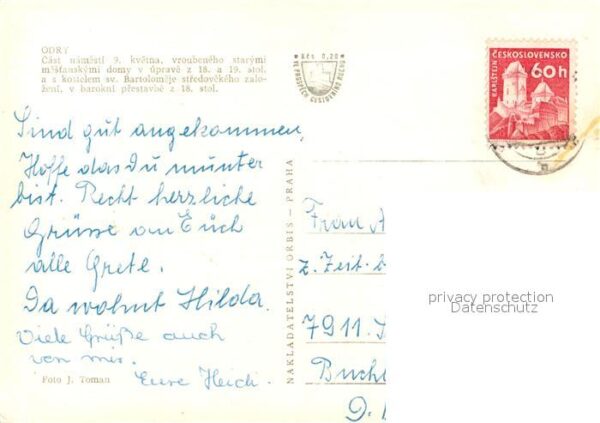 ODRY
Část náměstí 9. května, vroubeného starými
měšťanskými domy v úpravě z 18. a 19. stol.
a s kostelem sv. Bartoloměje středověkého zalo-
žení, v barokní přestavbě z 18. stol.
Kčs 0,20
ČESKOSLOVENSKO
KARLŠTEJN
60h
Sind gut angekommen,
Hoffe das du munter
bist. Recht herzliche
Grüsse an Euch
alle Grete.
Da wohnt Hilda.
Viele Grüße auch
von mir.
Eure Heidi.
Foto J. Toman
NAKLADATELSTVÍ ORBIS — PRAHA
Frau A
z. Zeit b
7911 S
Buch
D.
privacy protection
Datenschutz